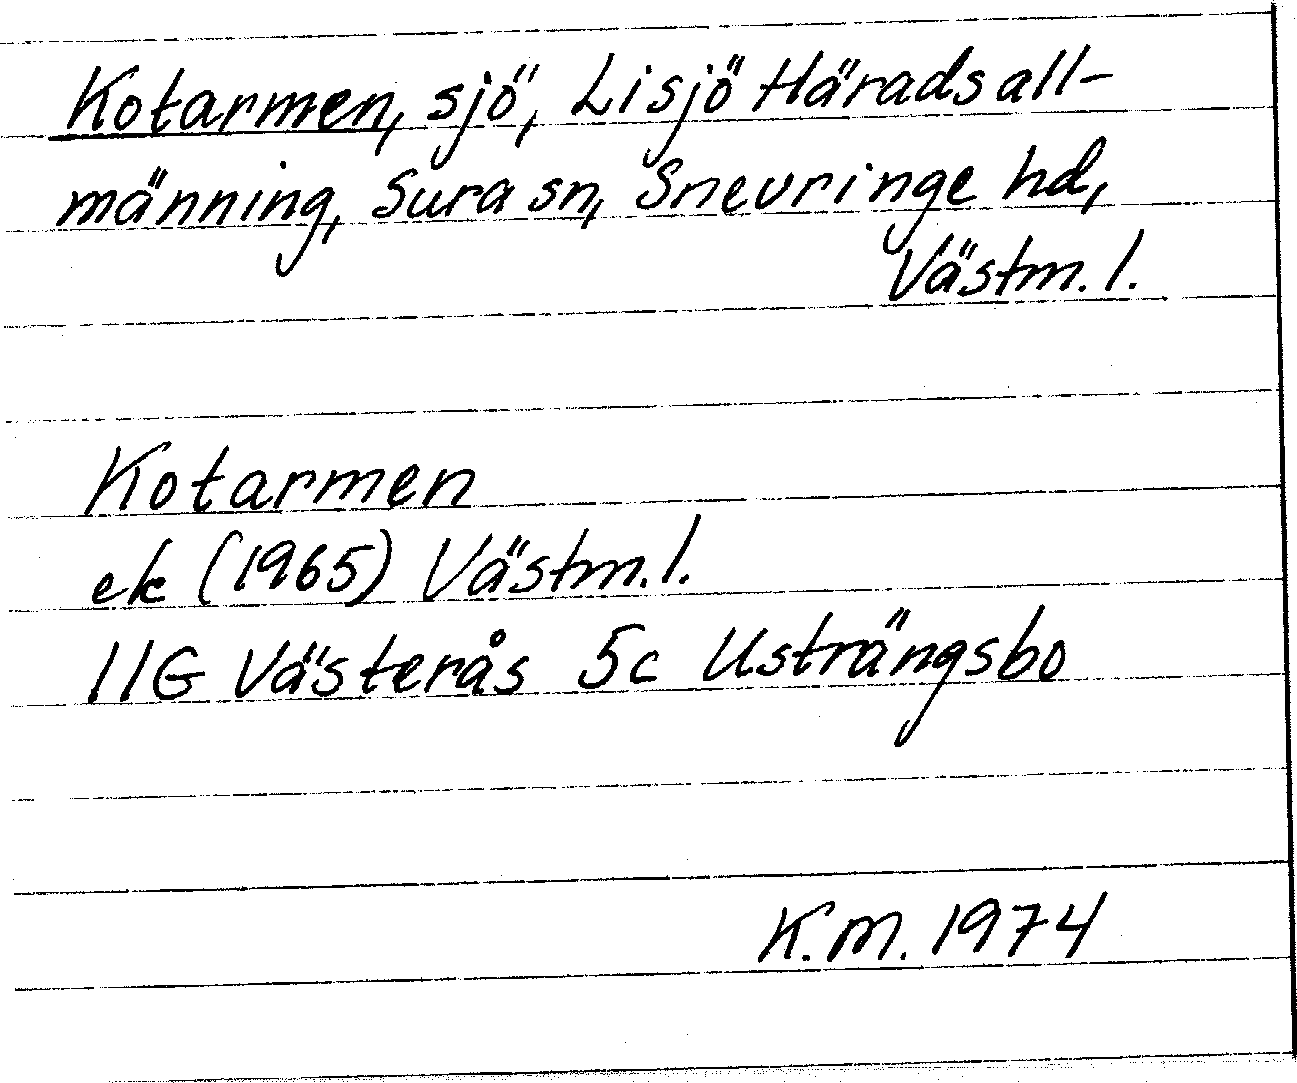 Kotarmen, sjö, Lisjö Häradsall-
männing, Sura sn, Snevringe hd,
Västm. l.
Kotarmen
ek (1965) Västm. l.
11G Västerås 5c Usträngsbo
K.M. 1974